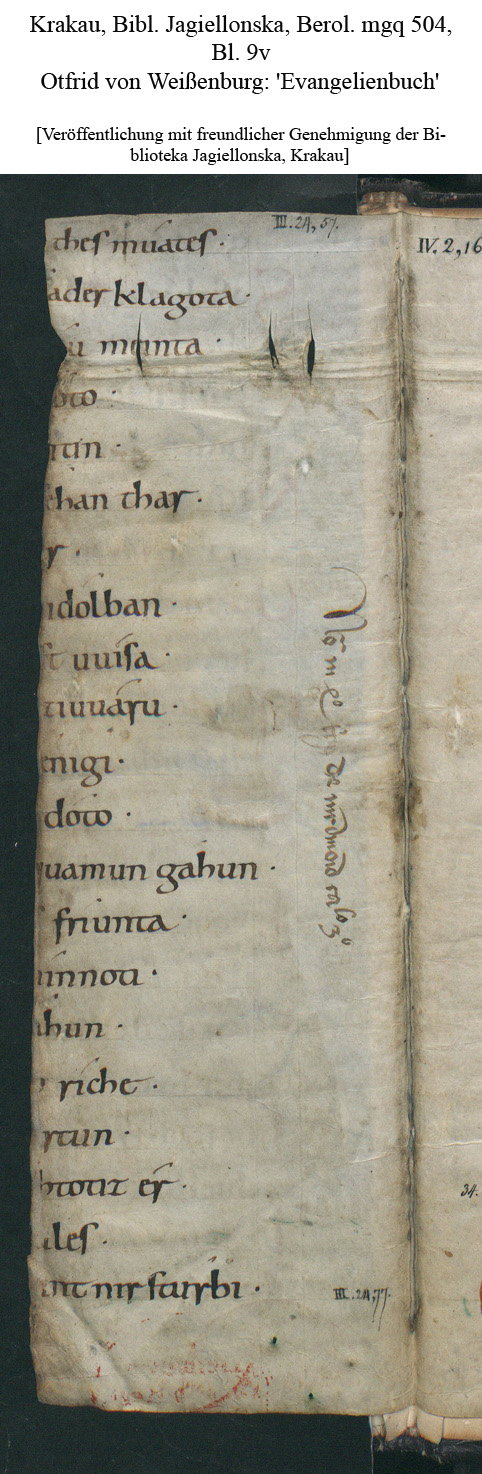 Krakau, Bibl. Jagiellonska, Berol. mgq 504,
Bl. 9v
Otfrid von Weißenburg: 'Evangelienbuch'
[Veröffentlichung mit freundlicher Genehmigung der Bi-
blioteka Jagiellonska, Krakau]
III. 24, 57.
IV. 2, 16
thes muates ·
ader klagota ·
u meinta ·
oto ·
tin ·
han thar ·
r ·
dolban ·
t uuisa ·
tiuuaru ·
nigi ·
doto ·
quamun gahun ·
friunta ·
innota ·
ahun ·
riche ·
rtun ·
totiz er ·
ales ·
nt mir starbi ·
34.
III. 24, 77.